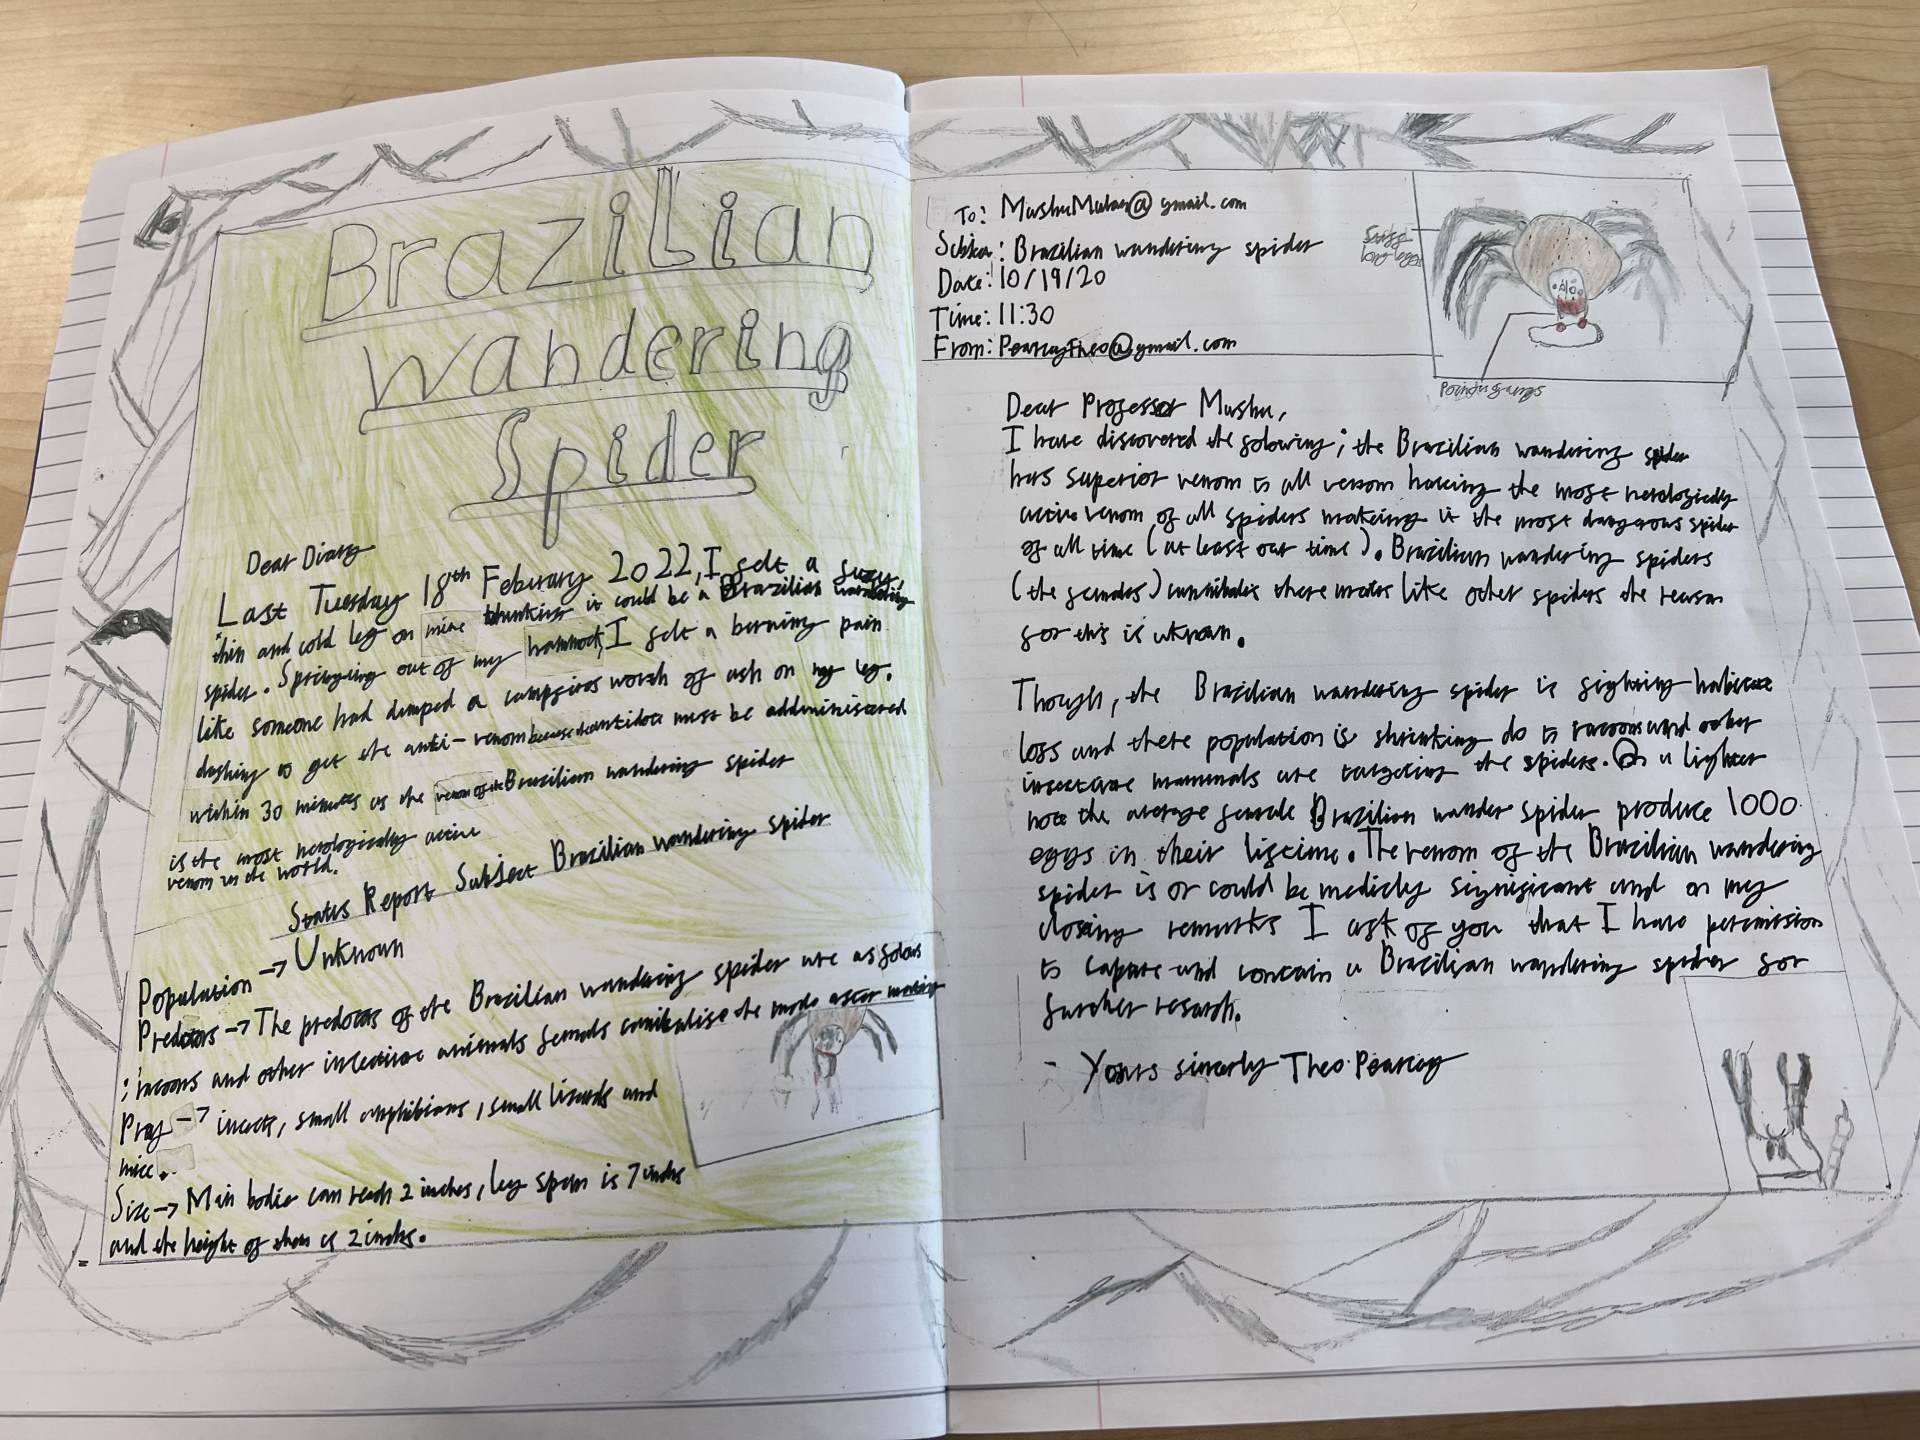 Brazilian
Wandering
Spider
Dear Diary
Last Tuesday 18th February 2022, I felt a
thin and cold leg on mine thinking it could be a Brazilian wandering
spider. Springing out of my hammock, I felt a burning pain
like someone had dumped a campfires worth of ash on my leg.
dashing to get the anti-venom because the antidote must be addministered
within 30 minutes as the venom of the Brazilian wandering spider
is the most nerologically active
venom in the world.
Status Report Subject Brazilian wandering spider
Population → Unknown
Predctors → The predotars of the Brazilian wandering spider are as folows
; racoons and other insective animals femals canibalise the male after mating
Pray → insects, small amphibians, small lizards and
mice.
Size → Main bodie can reach 2 inches, leg span is 7 inchs
and the height of them is 2 inchs.
To: MushuMulan@gmail.com
: Brazilian wandering spider
Date: 10/19/20
Time: 11:30
From: PearceyTheo@gmail.com
long legs
fangs
Dear Professor Mushu,
I have discovered the folowing; the Brazilian wandering spider
has superior venom to all venom having the most nerologicly
active venom of all spiders making it the most dangerous spider
of all time (at least our time). Brazilian wandering spiders
(the females) cannibales there mates like other spiders the reason
for this is uknown.
Though, the Brazilian wandering spider is fighting habitate
loss and there population is shrinking do to racoons and other
insective mammals are targeting the spiders. On a lighter
note the average female Brazilian wander spider produce 1000
eggs in their lifetime. The venom of the Brazilian wandering
spider is or could be medicly significant and on my
closing remarks I ask of you that I have permission
to capture and contain a Brazilian wandering spider for
further research.
- Yours sincerly Theo Pearcey